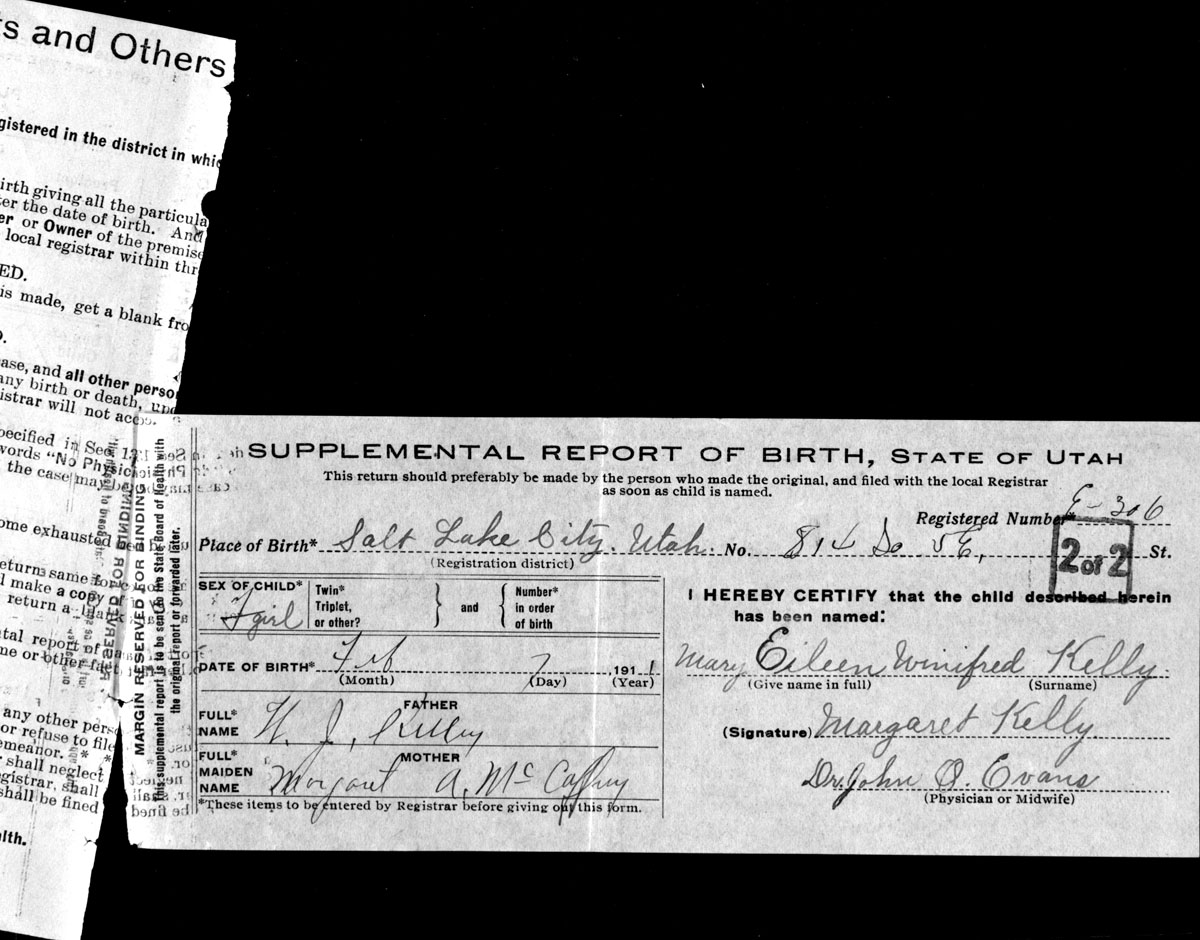 s and Others
gistered in the district in whic
irth giving all the particula
ter the date of birth. And
er or Owner of the premise
local registrar within thr
ED.
is made, get a blank fro
ase, and all other perso
any birth or death, upo
istrar will not acc
pecified in Sec. 13
words "No Physici
the case may be
ome exhausted
return same for
d make a copy
return a
tal report of
me or other fact
any other pers
or refuse to file
emeanor. * *
shall neglect
gistrar, shall
shall be fined
lth.
MARGIN RESERVED FOR BINDING
This supplemental report is to be sent to the State Board of Health with
the original report or forwarded later.
SUPPLEMENTAL REPORT OF BIRTH, STATE OF UTAH
This return should preferably be made by the person who made the original, and filed with the local Registrar
as soon as child is named.
Registered Number* -306
Place of Birth* Salt Lake City. Utah. No. 814 So 5E, St.
(Registration district)
2 of 2
SEX OF CHILD* girl
Twin*
Triplet,
or other?
and
Number*
in order
of birth
DATE OF BIRTH* Feb 7, 1911
(Month) (Day) (Year)
FATHER
FULL*
NAME J. Kelley
MOTHER
FULL*
MAIDEN
NAME Margaret A. McCaffrey
*These items to be entered by Registrar before giving out this form.
I HEREBY CERTIFY that the child described herein
has been named:
Mary Eileen Winifred Kelly.
(Give name in full) (Surname)
(Signature) Margaret Kelly.
Dr. John O. Evans
(Physician or Midwife)